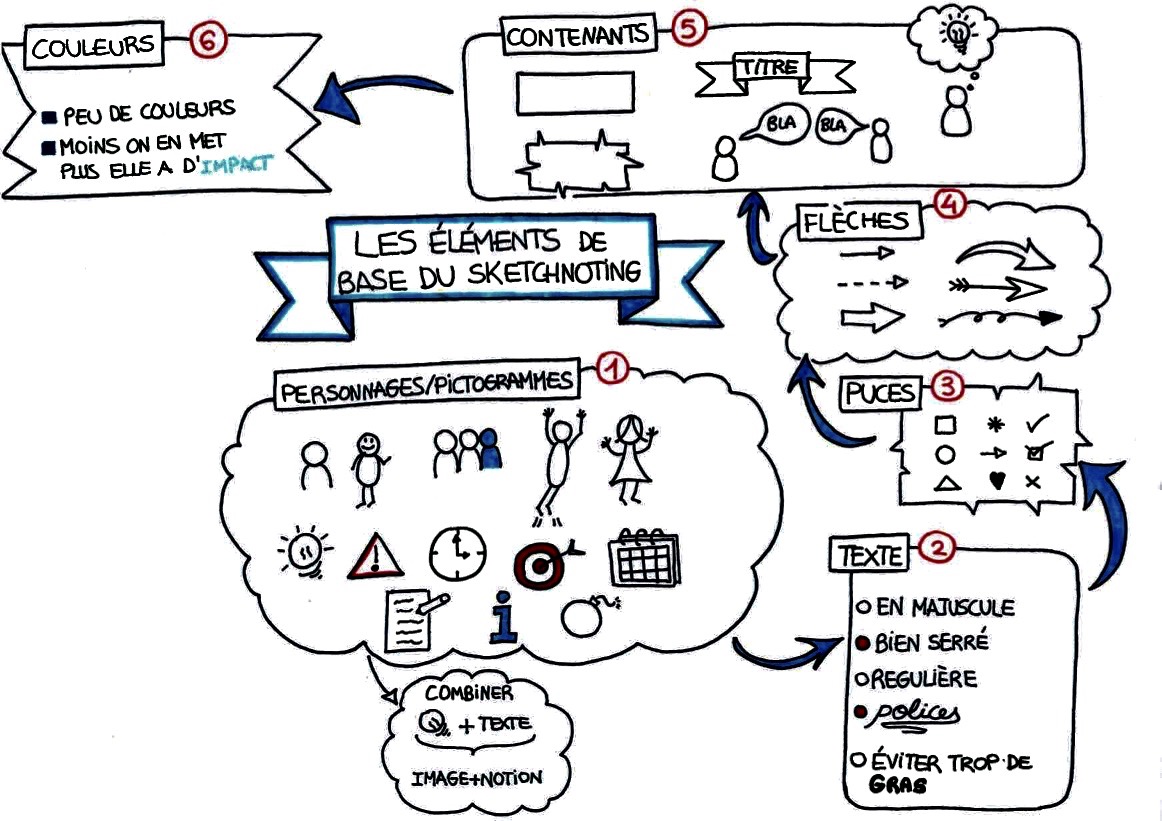 LES ÉLÉMENTS DE
BASE DU SKETCHNOTING
PERSONNAGES/PICTOGRAMMES
1
COMBINER
+ TEXTE
IMAGE+NOTION
TEXTE
2
EN MAJUSCULE
BIEN SERRÉ
REGULIÈRE
polices
ÉVITER TROP DE
GRAS
PUCES
3
FLÈCHES
4
CONTENANTS
5
TITRE
BLA
BLA
COULEURS
6
PEU DE COULEURS
MOINS ON EN MET
PLUS ELLE A D'IMPACT